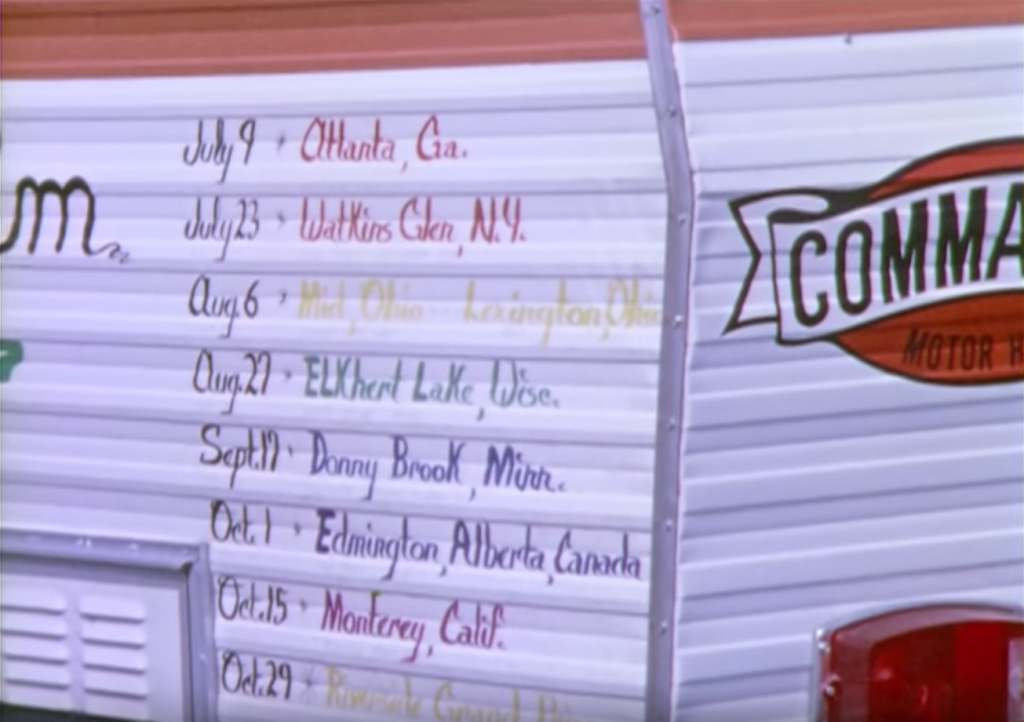 m
July 9 * Atlanta, Ga.
July 23 * Watkins Glen, N.Y.
Aug. 6 * Mid, Ohio - Lexington, Ohio
Aug. 27 * ELKhert Lake, Wisc.
Sept. 17 * Donny Brook, Minn.
Oct. 1 * Edmington, Alberta, Canada
Oct. 15 * Monterey, Calif.
Oct. 29 * Riverside Grand
COMMA
MOTOR H